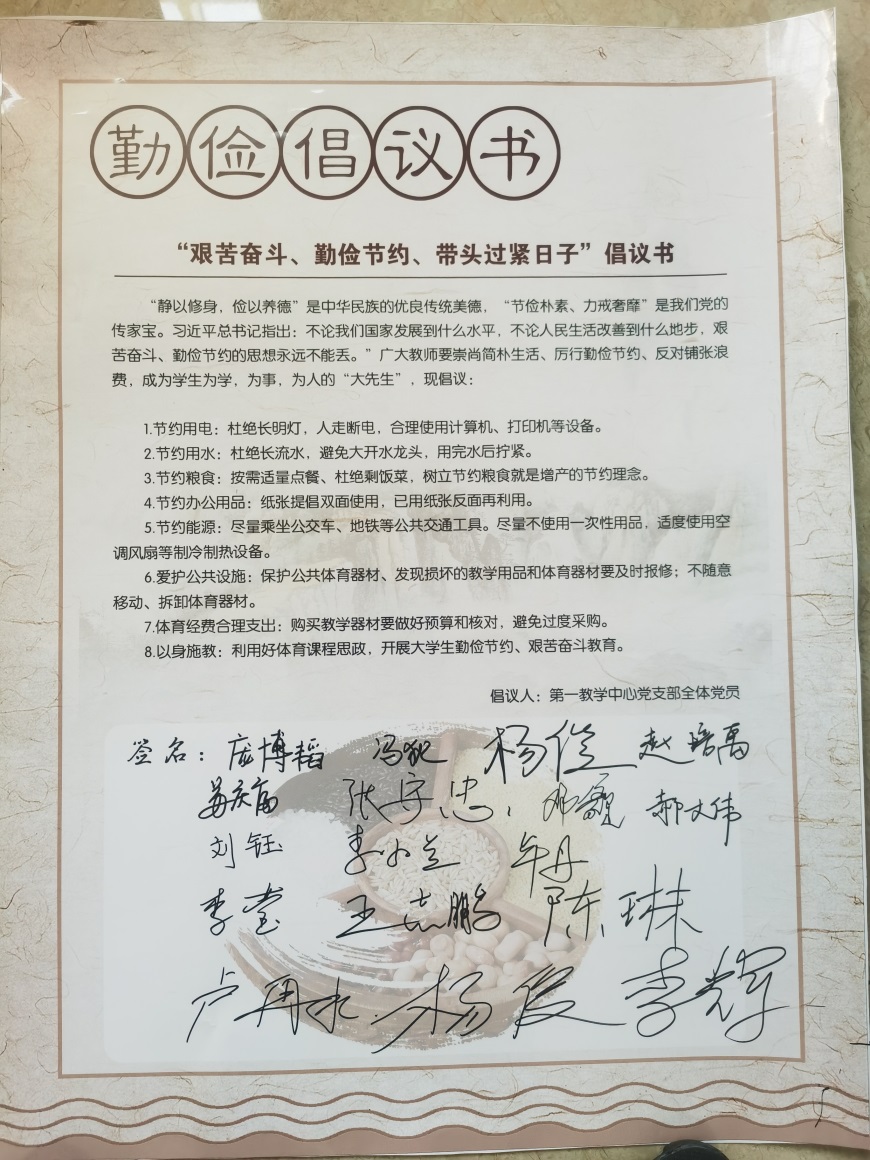 勤俭倡议书
“艰苦奋斗、勤俭节约、带头过紧日子”倡议书
“静以修身，俭以养德”是中华民族的优良传统美德，“节俭朴素、力戒奢靡”是我们党的
传家宝。习近平总书记指出：不论我们国家发展到什么水平，不论人民生活改善到什么地步，艰
苦奋斗、勤俭节约的思想永远不能丢。”广大教师要崇尚简朴生活、厉行勤俭节约、反对铺张浪
费，成为学生为学，为事，为人的“大先生”，现倡议：
1.节约用电：杜绝长明灯，人走断电，合理使用计算机、打印机等设备。
2.节约用水：杜绝长流水，避免大开水龙头，用完水后拧紧。
3.节约粮食：按需适量点餐、杜绝剩饭菜，树立节约粮食就是增产的节约理念。
4.节约办公用品：纸张提倡双面使用，已用纸张反面再利用。
5.节约能源：尽量乘坐公交车、地铁等公共交通工具。尽量不使用一次性用品，适度使用空
调风扇等制冷制热设备。
6.爱护公共设施：保护公共体育器材、发现损坏的教学用品和体育器材要及时报修；不随意
移动、拆卸体育器材。
7.体育经费合理支出：购买教学器材要做好预算和核对，避免过度采购。
8.以身施教：利用好体育课程思政，开展大学生勤俭节约、艰苦奋斗教育。
倡议人：第一教学中心党支部全体党员
签名：庞博韬 杨俊
张守忠 郝文伟
刘钰 李小兰 牟丹
李莹 王志鹏 陈琳
卢再水 杨俊 李辉